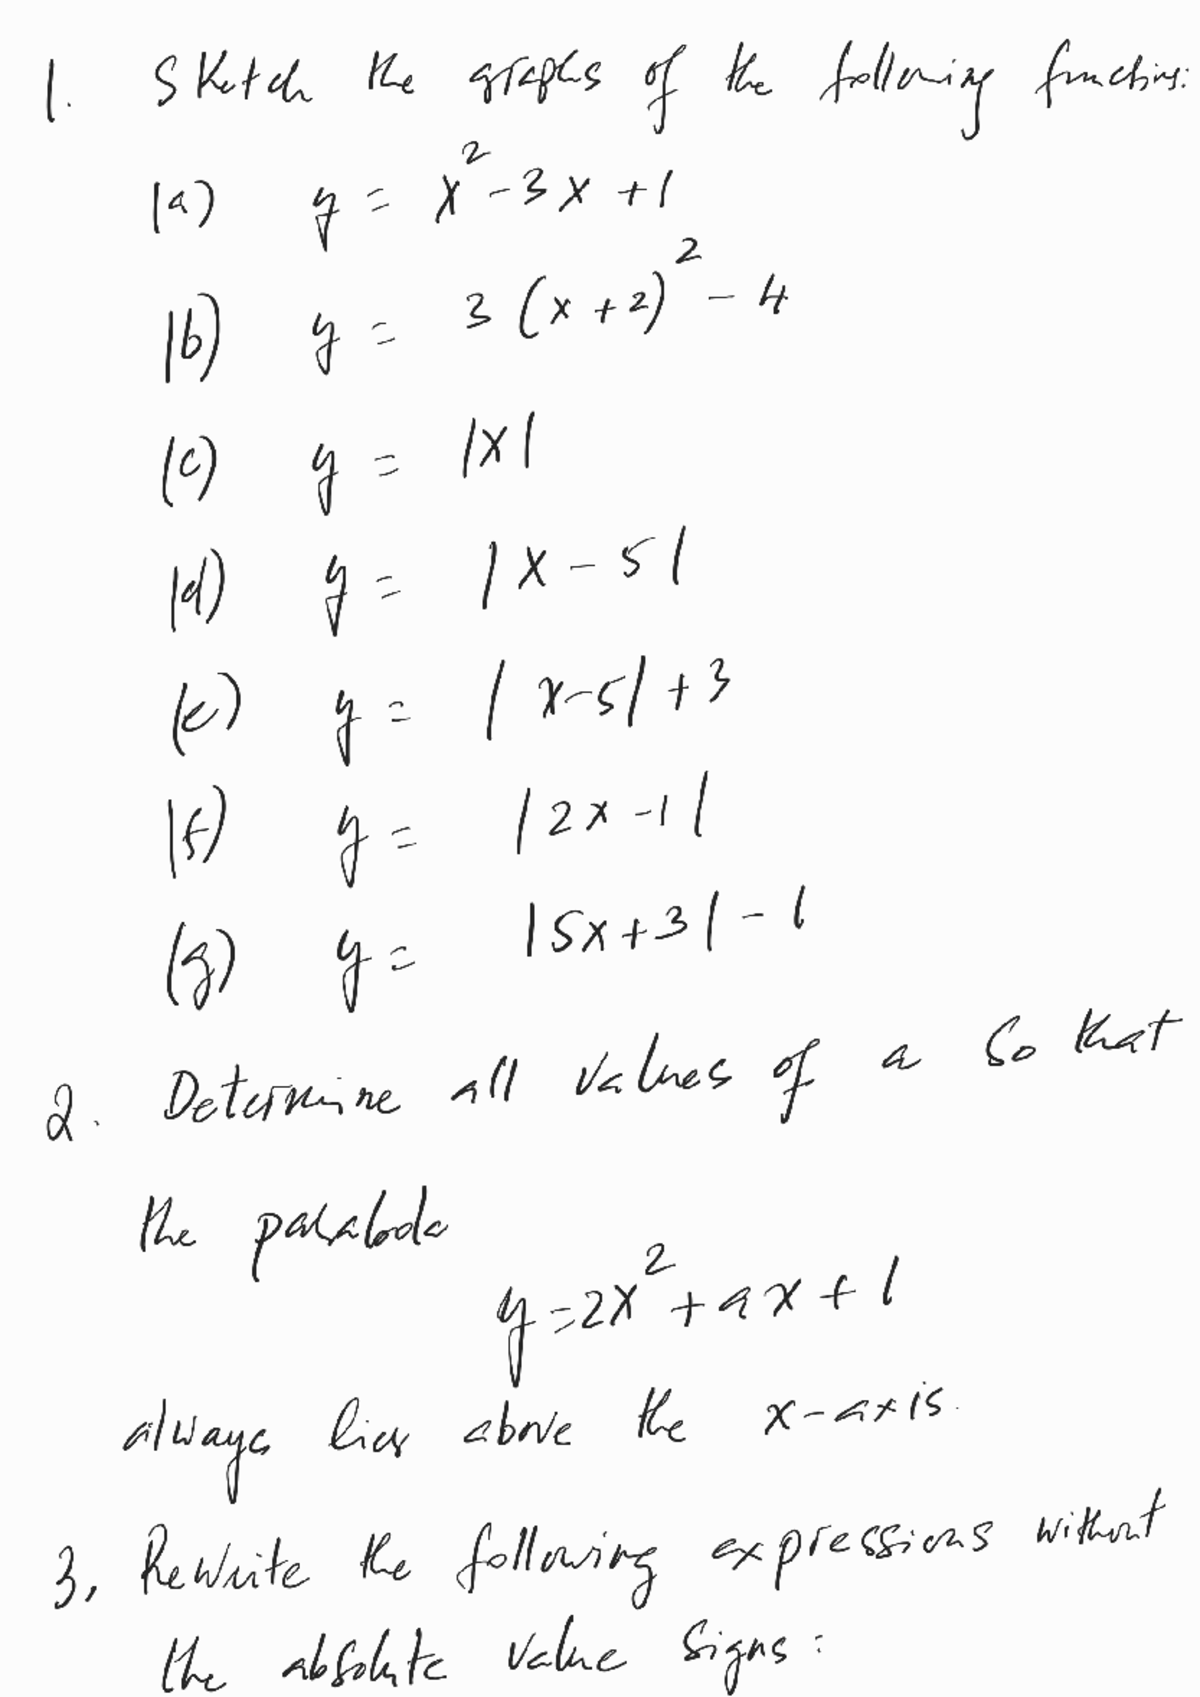 1. Sketch the graphs of the following functions:
(a) y = x² - 3x + 1
(b) y = 3 (x + 2)² - 4
(c) y = |x|
(d) y = |x - 5|
(e) y = |x - 5| + 3
(f) y = |2x - 1|
(g) y = |5x + 3| - 1
2. Determine all values of a so that
the parabola
y = 2x² + ax + 1
always lies above the x-axis.
3, Rewrite the following expressions without
the absolute value signs: